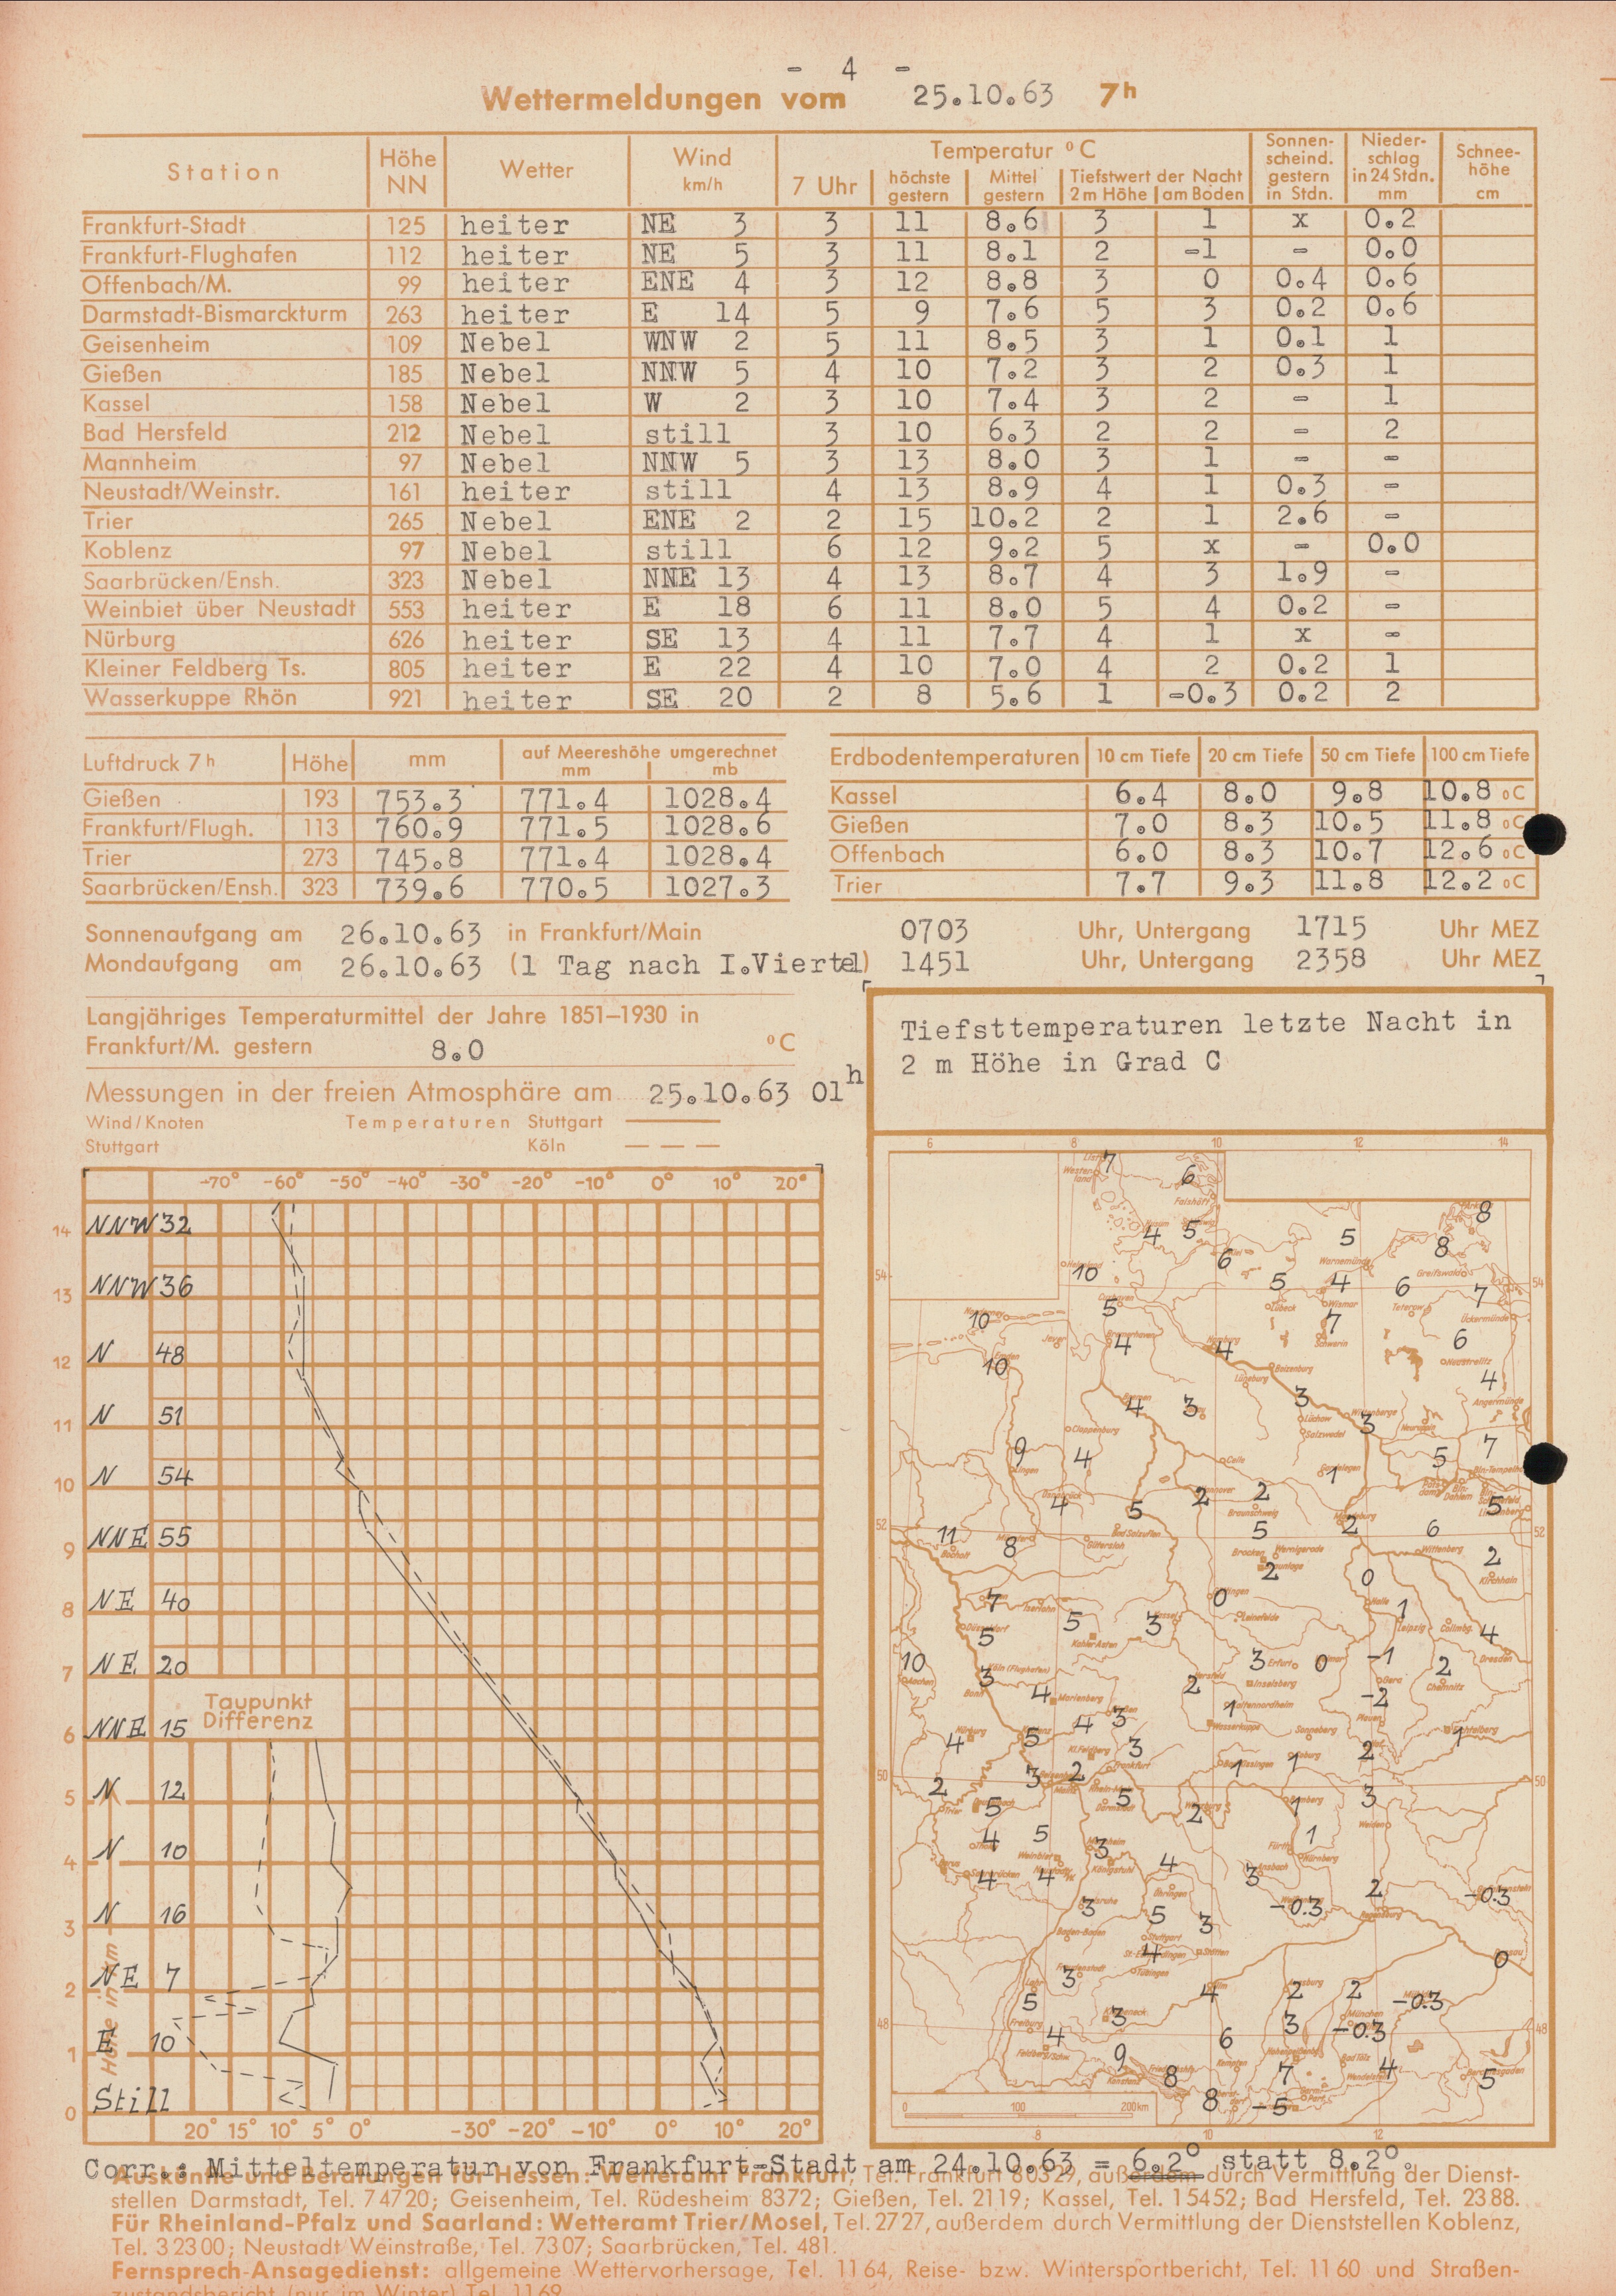 - 4 -
Wettermeldungen vom 25.10.63 7h
Station Höhe NN Wetter Wind km/h Temperatur °C Sonnenscheind. gestern in Stdn. Niederschlag in 24 Stdn. mm Schneehöhe cm
7 Uhr höchste gestern Mittel gestern Tiefstwert der Nacht 2 m Höhe am Boden
Frankfurt-Stadt 125 heiter NE 3 3 11 8.6 3 1 x 0.2
Frankfurt-Flughafen 112 heiter NE 5 3 11 8.1 2 -1 - 0.0
Offenbach/M. 99 heiter ENE 4 3 12 8.8 3 0 0.4 0.6
Darmstadt-Bismarckturm 263 heiter E 14 5 9 7.6 5 3 0.2 0.6
Geisenheim 109 Nebel WNW 2 5 11 8.5 3 1 0.1 1
Gießen 185 Nebel NNW 5 4 10 7.2 3 2 0.3 1
Kassel 158 Nebel W 2 3 10 7.4 3 2 - 1
Bad Hersfeld 212 Nebel still 3 10 6.3 2 2 - 2
Mannheim 97 Nebel NNW 5 3 13 8.0 3 1 - -
Neustadt/Weinstr. 161 heiter still 4 13 8.9 4 1 0.3 -
Trier 265 Nebel ENE 2 2 15 10.2 2 1 2.6 -
Koblenz 97 Nebel still 6 12 9.2 5 x - 0.0
Saarbrücken/Ensh. 323 Nebel NNE 13 4 13 8.7 4 3 1.9 -
Weinbiet über Neustadt 553 heiter E 18 6 11 8.0 5 4 0.2 -
Nürburg 626 heiter SE 13 4 11 7.7 4 1 x -
Kleiner Feldberg Ts. 805 heiter E 22 4 10 7.0 4 2 0.2 1
Wasserkuppe Rhön 921 heiter SE 20 2 8 5.6 1 -0.3 0.2 2
Luftdruck 7h Höhe mm auf Meereshöhe umgerechnet mm mb
Gießen 193 753.3 771.4 1028.4
Frankfurt/Flugh. 113 760.9 771.5 1028.6
Trier 273 745.8 771.4 1028.4
Saarbrücken/Ensh. 323 739.6 770.5 1027.3
Erdbodentemperaturen 10 cm Tiefe 20 cm Tiefe 50 cm Tiefe 100 cm Tiefe
Kassel 6.4 8.0 9.8 10.8 °C
Gießen 7.0 8.3 10.5 11.8 °C
Offenbach 6.0 8.3 10.7 12.6 °C
Trier 7.7 9.3 11.8 12.2 °C
Sonnenaufgang am 26.10.63 in Frankfurt/Main 0703 Uhr, Untergang 1715 Uhr MEZ
Mondaufgang am 26.10.63 (1 Tag nach I.Viertel) 1451 Uhr, Untergang 2358 Uhr MEZ
Langjähriges Temperaturmittel der Jahre 1851–1930 in
Frankfurt/M. gestern 8.0 °C
Messungen in der freien Atmosphäre am 25.10.63 01h
Wind/Knoten Temperaturen Stuttgart
Stuttgart Köln
-70° -60° -50° -40° -30° -20° -10° 0° 10° 20°
14 NNW 32
13 NNW 36
12 N 48
11 N 51
10 N 54
9 NNE 55
8 NE 40
7 NE 20
Taupunkt
Differenz
6 NNE 15
5 N 12
4 N 10
3 N 16
2 NE 7
1 E 10
0 Still
Höhe in km
20° 15° 10° 5° 0° -30° -20° -10° 0° 10° 20°
Tiefsttemperaturen letzte Nacht in
2 m Höhe in Grad C
6 8 10 12 14
7 6 8
4 5 5 8
10 6
54 5 4 6 7 54
10 5 7 6
10 4 4 4
4 3 3 3
9 4 1 5 7
4 5 2 2 2 5
52 11 8 5 6 52
2 0 2
7 5 3 0 1 4
5
10 3 3 0 -1 2
4 2 1 -2
4 5 4 3 3 2 1
50 2 3 2 1 1 50
5 5 2 1 3
4 5 3 1
4 4 4 3 2 -0.3
3 5 3 -0.3
4 0
3 4 2 2 -0.3
5
48 4 3 6 3 -0.3 48
9 8 7 4 5
8 -5
0 100 200km
8 10 12
Corr.: Mitteltemperatur von Frankfurt-Stadt am 24.10.63 = 6.2° statt 8.2°.
Auskünfte und Beratungen für Hessen: Wetteramt Frankfurt, Tel. Frankfurt 80329, außerdem durch Vermittlung der Dienst-
stellen Darmstadt, Tel. 74720; Geisenheim, Tel. Rüdesheim 8372; Gießen, Tel. 2119; Kassel, Tel. 15452; Bad Hersfeld, Tel. 2388.
Für Rheinland-Pfalz und Saarland: Wetteramt Trier/Mosel, Tel. 2727, außerdem durch Vermittlung der Dienststellen Koblenz,
Tel. 32300; Neustadt Weinstraße, Tel. 7307; Saarbrücken, Tel. 481.
Fernsprech-Ansagedienst: allgemeine Wettervorhersage, Tel. 1164, Reise- bzw. Wintersportbericht, Tel. 1160 und Straßen-
zustandsbericht (nur im Winter) Tel. 1169